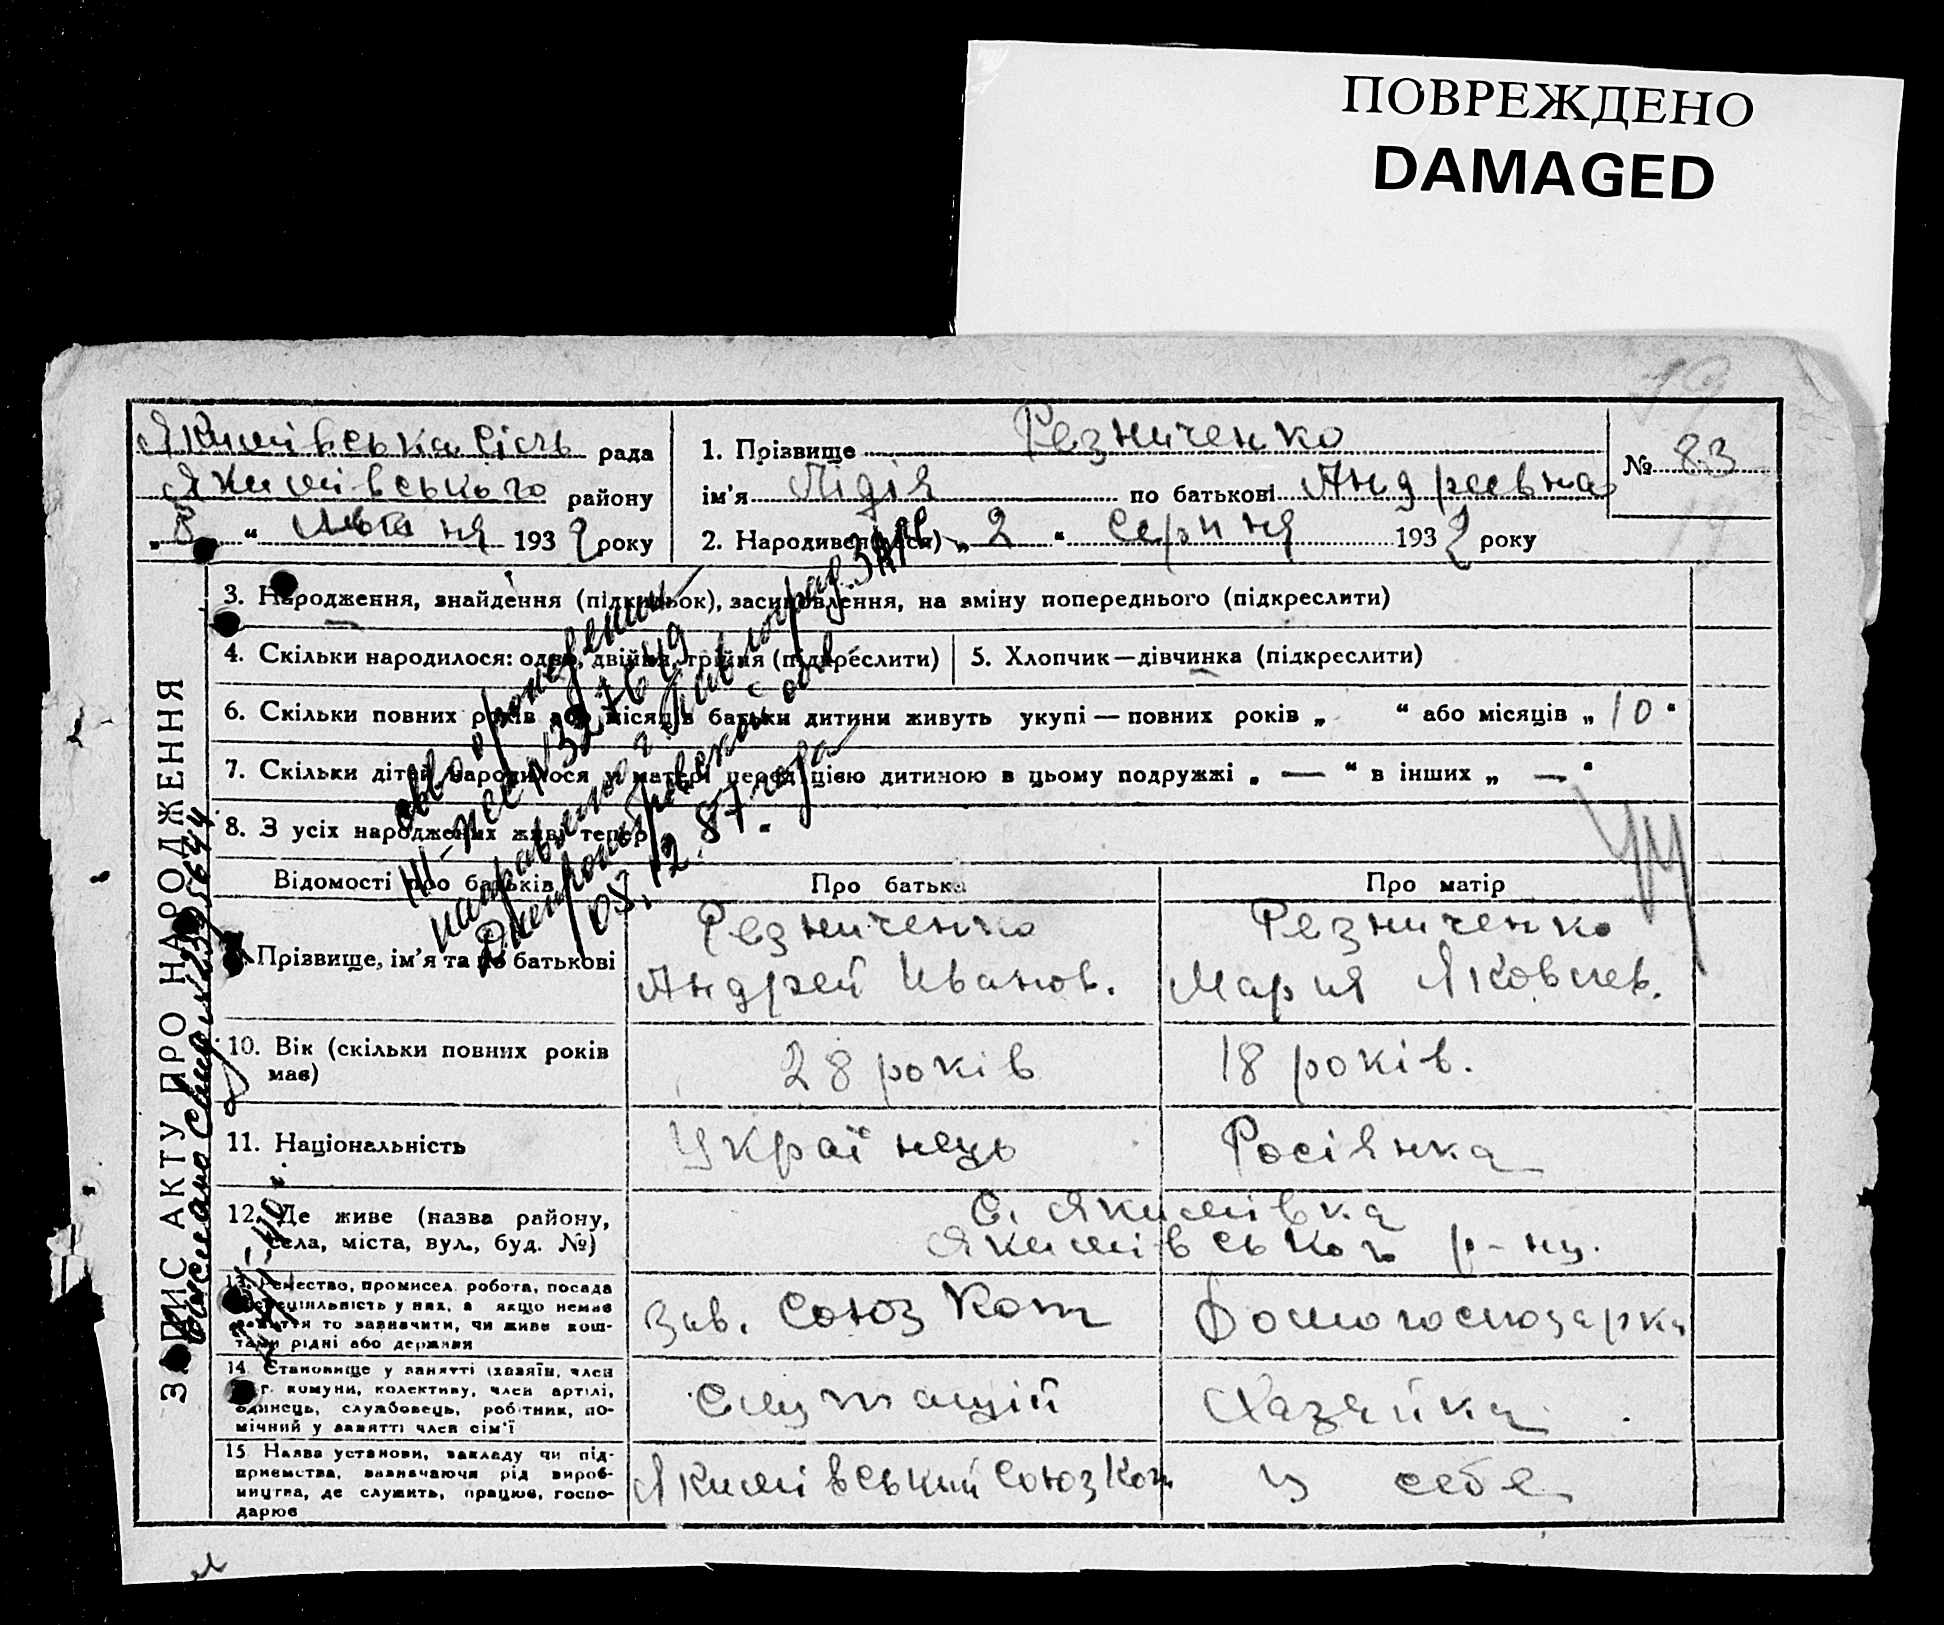 ПОВРЕЖДЕНО
DAMAGED
19
Якимівська сіль рада
Якимівського району
„ 8 “ 193 2 року
1. Прізвище Резниченко
ім'я Лідія по батькові Андреевна
2. Народився(лася) „ 2 “ Серпня 193 2 року
№ 83
19
ЗАПИС АКТУ ПРО НАРОДЖЕННЯ
3. Народження, знайдення (підкидьок), засиновлення, на зміну попереднього (підкреслити)
4. Скільки народилося: одно, двійня, трійня (підкреслити)
5. Хлопчик — дівчинка (підкреслити)
6. Скільки повних років або місяців батьки дитини живуть укупі — повних років „ “ або місяців „ 10 “
7. Скільки дітей народилося у матері перед цією дитиною в цьому подружжі „ — “ в інших „ — “
8. З усіх народжених живі тепер „
Відомості про батьків
Про батька
Про матір
9. Прізвище, ім'я та по батькові
Резниченко
Андрей Иванов.
Резниченко
Мария Яковлев.
10. Вік (скільки повних років
має)
28 років
18 років.
11. Національність
Українець
Росіянка
12. Де живе (назва району,
села, міста, вул., буд. №)
С. Якимівка
Якимівськог р-ну.
13. Ремество, промисел, робота, посада
спеціяльність у них, а якщо немає
заняття то зазначити, чи живе кош-
тами рідні або держави
Зав. Союз Кот
Домогосподарка
14. Становище у занятті (хазяїн, член
с.-г. комуни, колективу, член артілі,
одинець, службовець, робітник, по-
мічний у занятті член сім'ї
Служащій
Хазяйка
15. Назва установи, закладу чи під-
приємства, зазначаючи рід вироб-
ництва, де служить, працює, госпо-
дарює
Якимівський Союз Кот
У себе
свво о рождении
III-ЖС № 327649
направлено в г. Павлоград. ЗАГС
Днепропетровской обл.
05.12.87 года